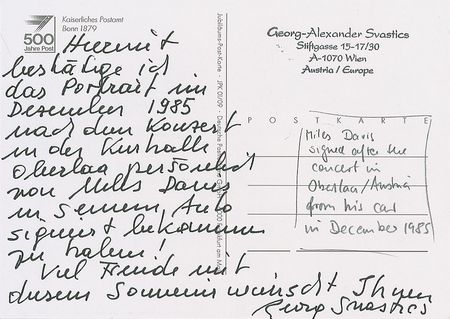 500
Jahre Post
Kaiserliches Postamt
Bonn 1879
Hiermit
bestätige ich
das Portrait im
Dezember 1985
nach dem Konzert
in der Kurhalle
Oberlaa persönlich
von Miles Davis
in seinem Auto
signiert bekommen
zu haben!
Viel Freude mit
diesem Souvenir wünscht Ihnen
Georg Svastics
Jubiläums-Post-Karte
Georg-Alexander Svastics
Stiftgasse 15-17/30
A-1070 Wien
Austria / Europe
POSTKARTE
Miles Davis
signed after the
concert in
Oberlaa/Austria
from his car
in December 1985